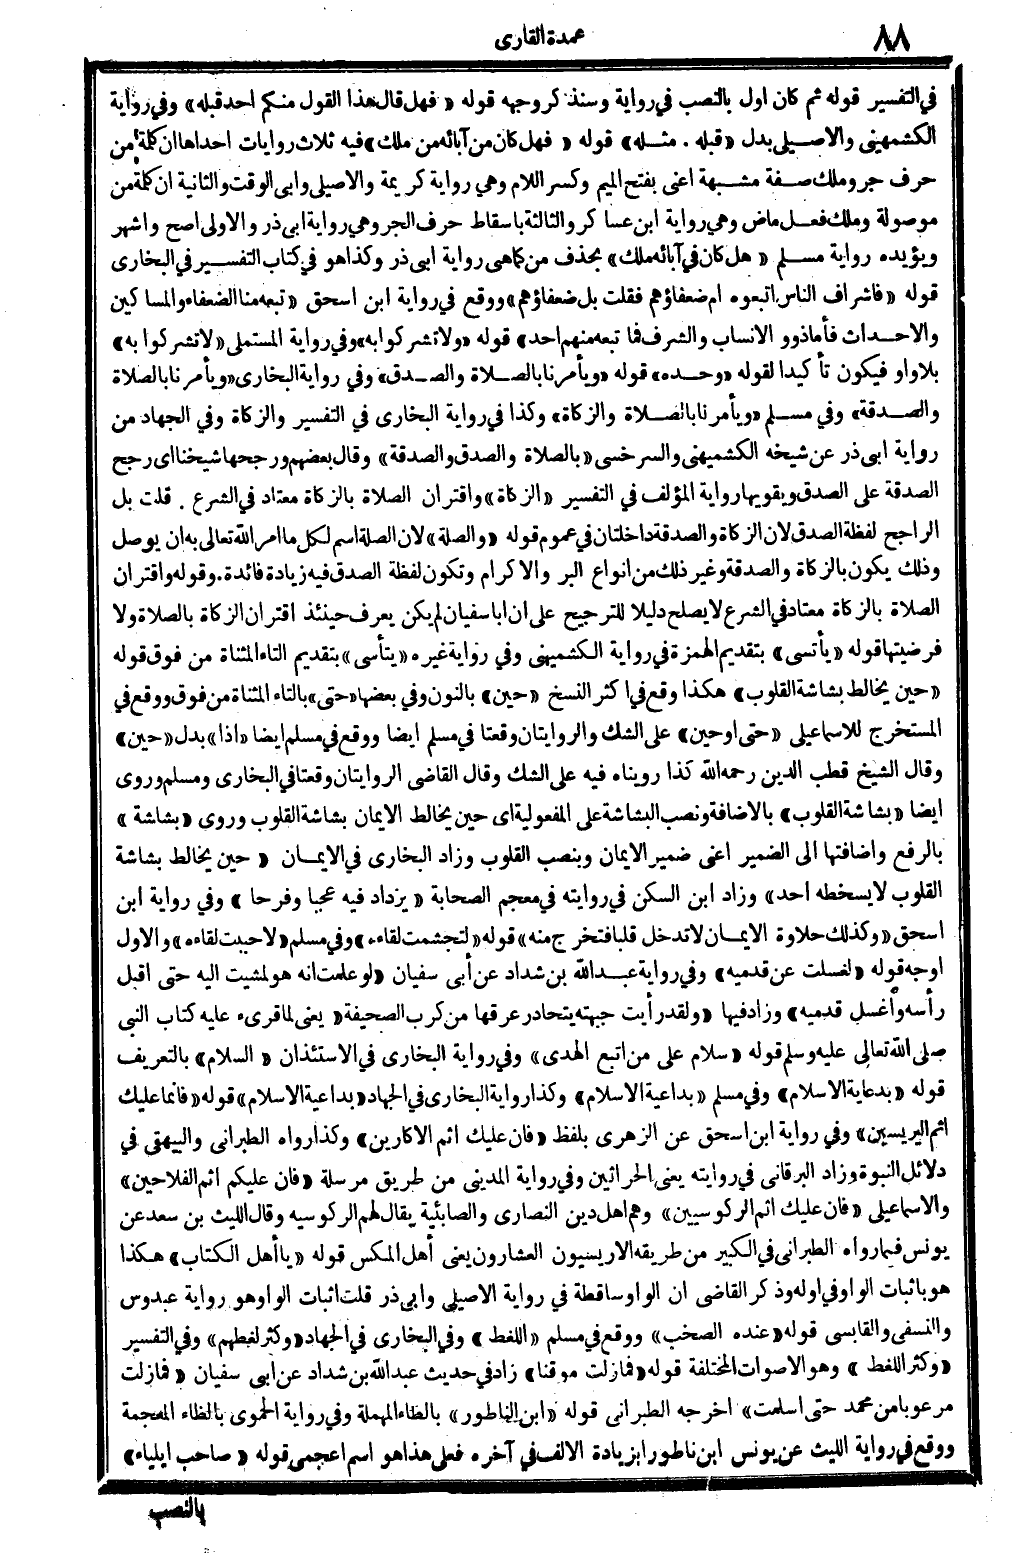 ٨٨
عمدة القارى
في التفسير قوله ثم كان اول بالنصب في رواية وسنذكر وجهه قوله «فهل قال هذا القول منكم احد قبله» وفي رواية
الكشمهيني والاصيلي بدل «قبله . مثله» قوله «فهل كان من آبائه من ملك» فيه ثلاث روايات احداها ان كلمة من
حرف جر وملك صفة مشبهة اعنى بفتح الميم وكسر اللام وهي رواية كريمة والاصيلي وابى الوقت والثانية ان كلمة من
موصولة وملك فعل ماض وهي رواية ابن عساكر والثالثة باسقاط حرف الجر وهي رواية ابى ذر والاولى اصح واشهر
ويؤيده رواية مسلم «هل كان في آبائه ملك» بحذف من كما هى رواية ابى ذر وكذا هو في كتاب التفسير في البخارى
قوله «فاشراف الناس اتبعوه ام ضعفاؤهم فقلت بل ضعفاؤهم» ووقع في رواية ابن اسحق «تبعه منا الضعفاء والمساكين
والاحداث فأما ذوو الانساب والشرف فما تبعه منهم احد» قوله «ولا تشركوا به» وفي رواية المستملى «لا تشركوا به»
بلا واو فيكون تأكيدا لقوله «وحده» قوله «ويأمرنا بالصلاة والصدق» وفي رواية البخارى «ويأمرنا بالصلاة
والصدقة» وفي مسلم «ويأمرنا بالصلاة والزكاة» وكذا في رواية البخارى في التفسير والزكاة وفي الجهاد من
رواية ابى ذر عن شيخه الكشميهنى والسرخسى «بالصلاة والصدق والصدقة» وقال بعضهم ورجحها شيخنا اى رجح
الصدقة على الصدق ويقويها رواية المؤلف في التفسير «الزكاة» واقتران الصلاة بالزكاة معتاد في الشرع . قلت بل
الراجح لفظة الصدق لان الزكاة والصدقة داخلتان في عموم قوله «والصلة» لان الصلة اسم لكل ما امر الله تعالى به ان يوصل
وذلك يكون بالزكاة والصدقة وغير ذلك من انواع البر والاكرام وتكون لفظة الصدق فيه زيادة فائدة. وقوله واقتران
الصلاة بالزكاة معتاد في الشرع لا يصلح دليلا للترجيح على ان ابا سفيان لم يكن يعرف حينئذ اقتران الزكاة بالصلاة ولا
فرضيتها قوله «يأتسى» بتقديم الهمزة في رواية الكشميهنى وفي رواية غيره «يتأسى» بتقديم التاء المثناة من فوق قوله
«حين يخالط بشاشة القلوب» هكذا وقع في اكثر النسخ «حين» بالنون وفي بعضها «حتى» بالتاء المثناة من فوق ووقع في
المستخرج للاسماعيلى «حتى او حين» على الشك والروايتان وقعتا في مسلم ايضا ووقع في مسلم ايضا «اذا» بدل «حين»
وقال الشيخ قطب الدين رحمه الله كذا رويناه فيه على الشك وقال القاضى الروايتان وقعتا في البخارى ومسلم وروى
ايضا «بشاشة القلوب» بالاضافة ونصب البشاشة على المفعولية اى حين يخالط الايمان بشاشة القلوب وروى «بشاشة»
بالرفع واضافتها الى الضمير اعنى ضمير الايمان وبنصب القلوب وزاد البخارى في الايمان «حين يخالط بشاشة
القلوب لا يسخطه احد» وزاد ابن السكن في روايته في معجم الصحابة «يزداد فيه عجبا وفرحا» وفي رواية ابن
اسحق «وكذلك حلاوة الايمان لا تدخل قلبا فتخرج منه» قوله «لتجشمت لقاءه» وفي مسلم «لاحببت لقاءه» والاول
اوجه قوله «لغسلت عن قدميه» وفي رواية عبد الله بن شداد عن أبى سفيان «لو علمت انه هو لمشيت اليه حتى اقبل
رأسه وأغسل قدميه» وزاد فيها «ولقد رأيت جبهته يتحادر عرقها من كرب الصحيفة» يعنى لما قرىء عليه كتاب النبى
صلى الله تعالى عليه وسلم قوله «سلام على من اتبع الهدى» وفي رواية البخارى في الاستئذان «السلام» بالتعريف
قوله «بدعاية الاسلام» وفي مسلم «بداعية الاسلام» وكذا رواية البخارى في الجهاد «بداعية الاسلام» قوله «فانما عليك
اثم اليريسيين» وفي رواية ابن اسحق عن الزهرى بلفظ «فان عليك اثم الاكارين» وكذا رواه الطبرانى والبيهقى في
دلائل النبوة وزاد البرقانى في روايته يعنى الحراثين وفي رواية المدينى من طريق مرسلة «فان عليكم اثم الفلاحين»
والاسماعيلى «فان عليك اثم الركوسيين» وهم اهل دين النصارى والصابئية يقال لهم الركوسيه وقال الليث بن سعد عن
يونس فيما رواه الطبرانى في الكبير من طريقه الاريسيون العشارون يعنى أهل المكس قوله «يا أهل الكتاب» هكذا
هو باثبات الواو في اوله وذكر القاضى ان الواو ساقطة في رواية الاصيلى وابى ذر قلت اثبات الواو هو رواية عبدوس
والنسفى والقابسى قوله «عنده الصخب» ووقع في مسلم «اللغط» وفي البخارى في الجهاد «وكثر لغطهم» وفي التفسير
«وكثر اللغط» وهو الاصوات المختلفة قوله «فما زلت موقنا» زاد في حديث عبد الله بن شداد عن ابى سفيان «فما زلت
مرعوبا من محمد حتى اسلمت» اخرجه الطبرانى قوله «ابن الناطور» بالطاء المهملة وفي رواية الحموى بالظاء المعجمة
ووقع في رواية الليث عن يونس ابن ناطورا بزيادة الالف في آخره فعلى هذا هو اسم اعجمى قوله «صاحب ايلياء»
بالنصب